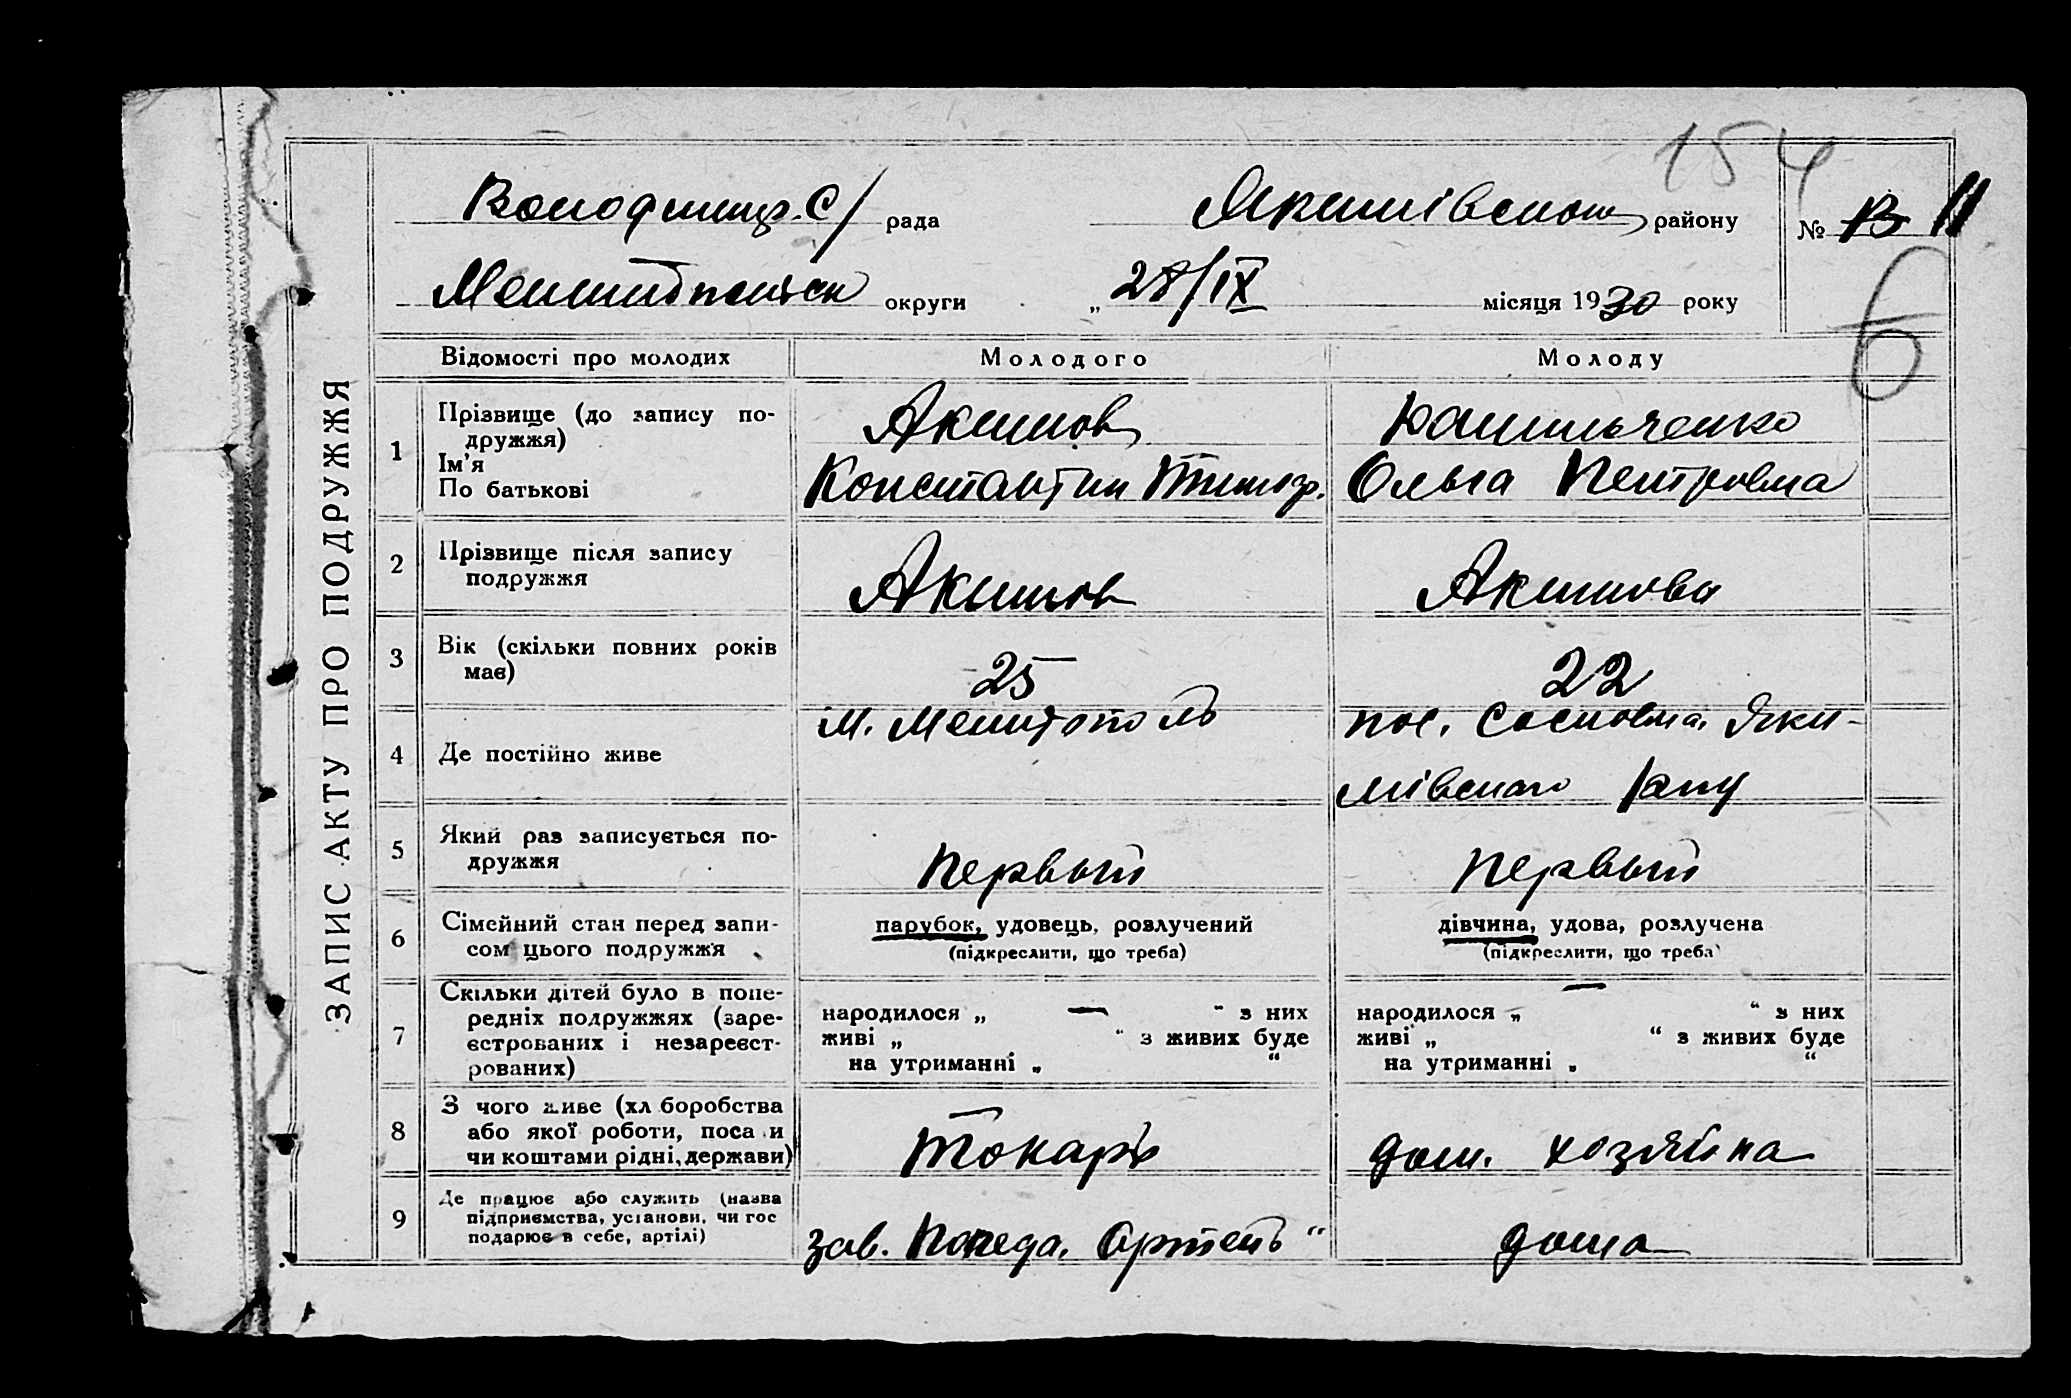 154
Володимир. С/ рада Якимівського району № 13 11
Мелитопольск округи „ 28/IX місяця 1930 року
6
ЗАПИС АКТУ ПРО ПОДРУЖЖЯ
Відомості про молодих Молодого Молоду
1 Прізвище (до запису по-
дружжя)
Ім'я
По батькові
Акимов
Константин Тимоф.
Ольга Петровна
2 Прізвище після запису
подружжя
Акимов Акимова
3 Вік (скільки повних років
має)
25 22
4 Де постійно живе
м. Мелитополь
пос. Сосновка, Яки-
мівского р-ну
5 Який раз записується по-
дружжя
первый первый
6 Сімейний стан перед запи-
сом цього подружжя
парубок, удовець, розлучений
(підкреслити, що треба)
дівчина, удова, розлучена
(підкреслити, що треба)
7 Скільки дітей було в попе-
редніх подружжях (заре-
єстрованих і незареєст-
рованих)
народилося „ — “ з них
живі „ “ з живих буде
на утриманні „ “
народилося „ — “ з них
живі „ “ з живих буде
на утриманні „ “
8 З чого живе (хл боробства
або якої роботи, поса и
чи коштами рідні, держави)
Токарь
дом. хозяйка
9 Де працює або служить (назва
підприємства, установи, чи гос
подарює в себе, артілі)
зав. Победа. Артель“
дома